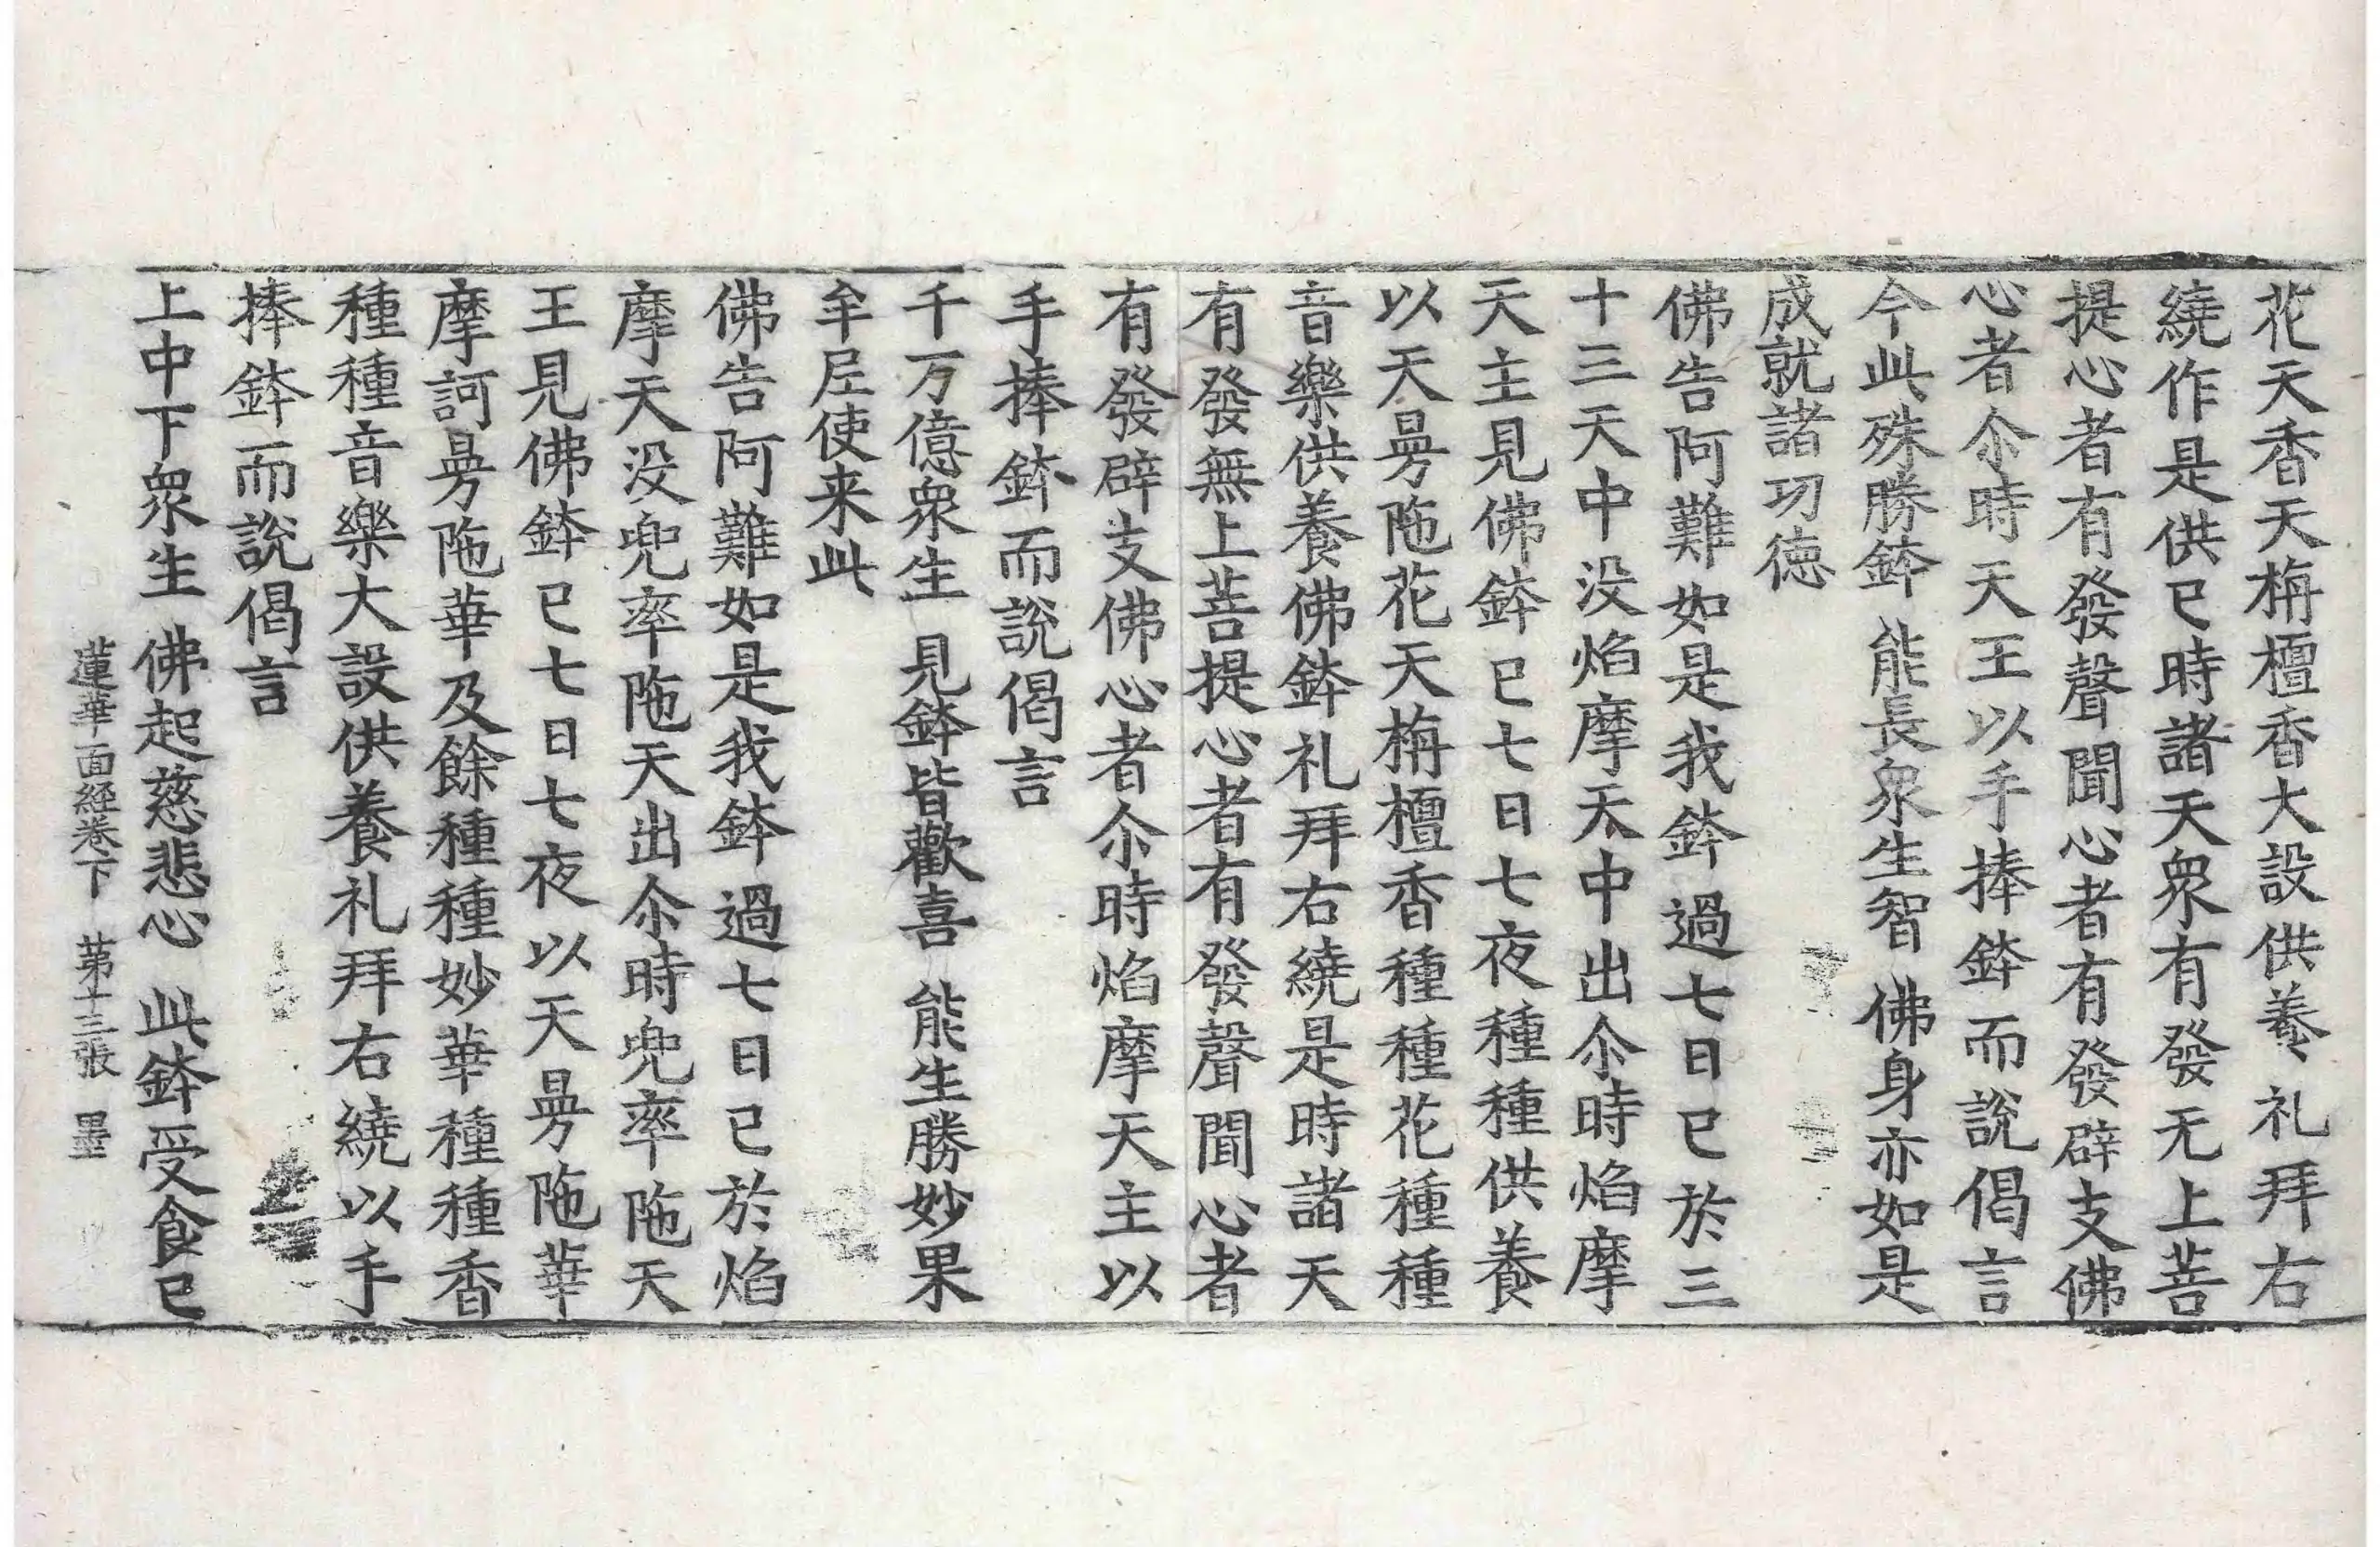 花天香天栴檀香大設供養礼拜右
繞作是供已時諸天衆有發无上菩
提心者有發聲聞心者有發辟支佛
心者尒時天王以手捧鉢而說偈言
今此殊勝鉢 能長衆生智 佛身亦如是
成就諸功徳
佛告阿難如是我鉢過七日已於三
十三天中没焰摩天中出尒時焰摩
天主見佛鉢已七日七夜種種供養
以天曼陁花天栴檀香種種花種種
音樂供養佛鉢礼拜右繞是時諸天
有發無上菩提心者有發聲聞心者
有發辟支佛心者尒時焰摩天主以
手捧鉢而說偈言
千万億衆生 見鉢皆歡喜 能生勝妙果
牟尼使来此
佛告阿難如是我鉢過七日已於焰
摩天没兜率陁天出尒時兜率陁天
王見佛鉢已七日七夜以天曼陁華
摩訶曼陁華及餘種種妙華種種香
種種音樂大設供養礼拜右繞以手
捧鉢而說偈言
上中下衆生 佛起慈悲心 此鉢受食已
蓮華面經卷下 第十三張 墨